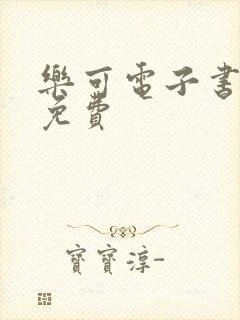 樂可電子書
免費
寶寶淳-